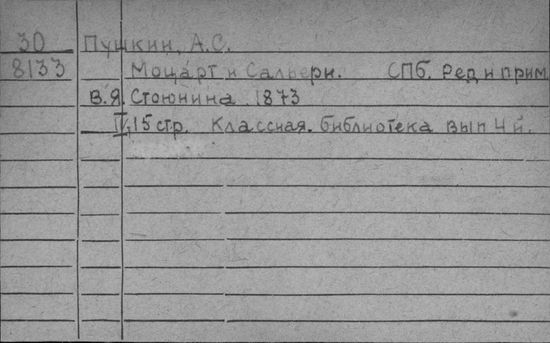 30 Пушкин, А.С.
8133 Моцарт и Сальери. СПб. Ред и прим
В.Я. Стоюнина 1873
IV, 15 стр. Классная библиотека вып 4й.